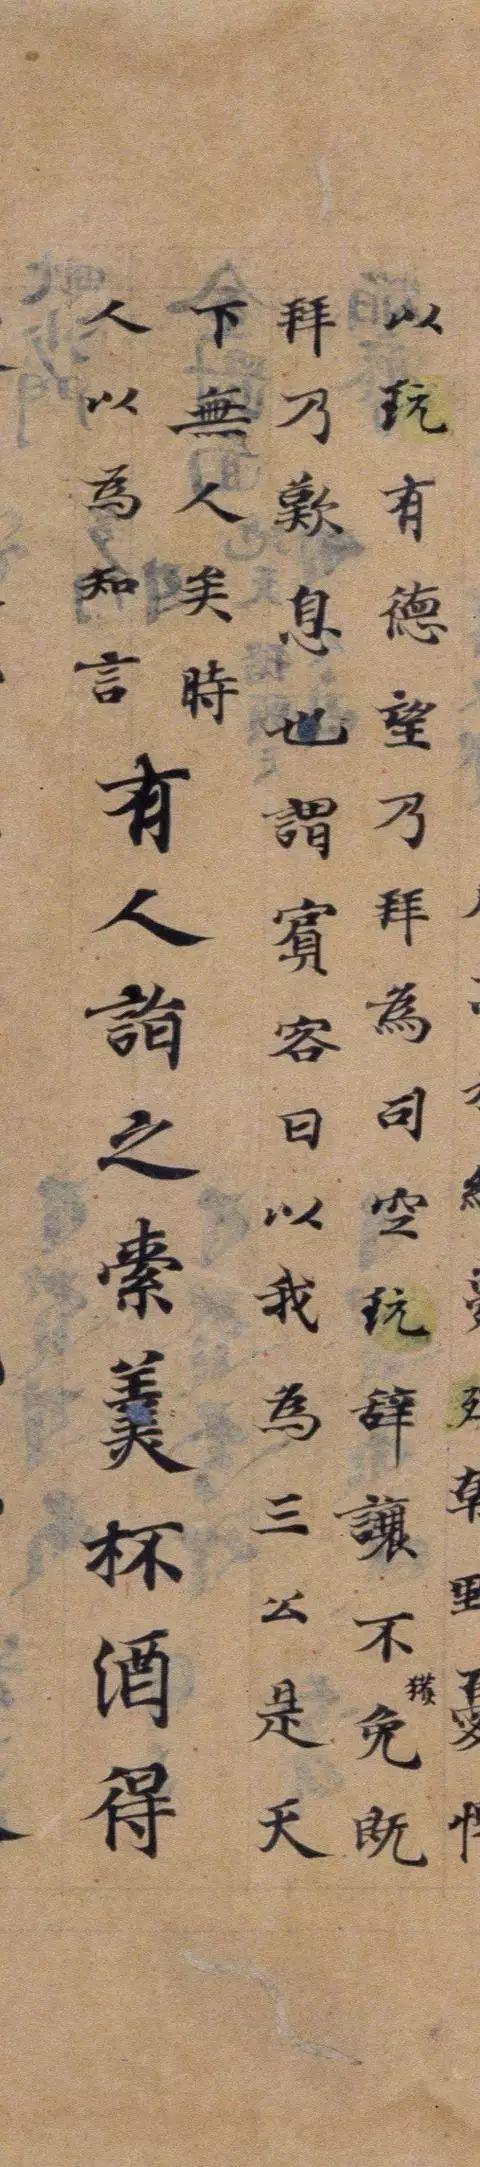 朝野憂
以玩有德望乃拜為司空玩辭讓不免既
拜乃歎息也謂賓客曰以我為三公是天
下無人矣時
人以為知言
有人詣之索美杯酒得